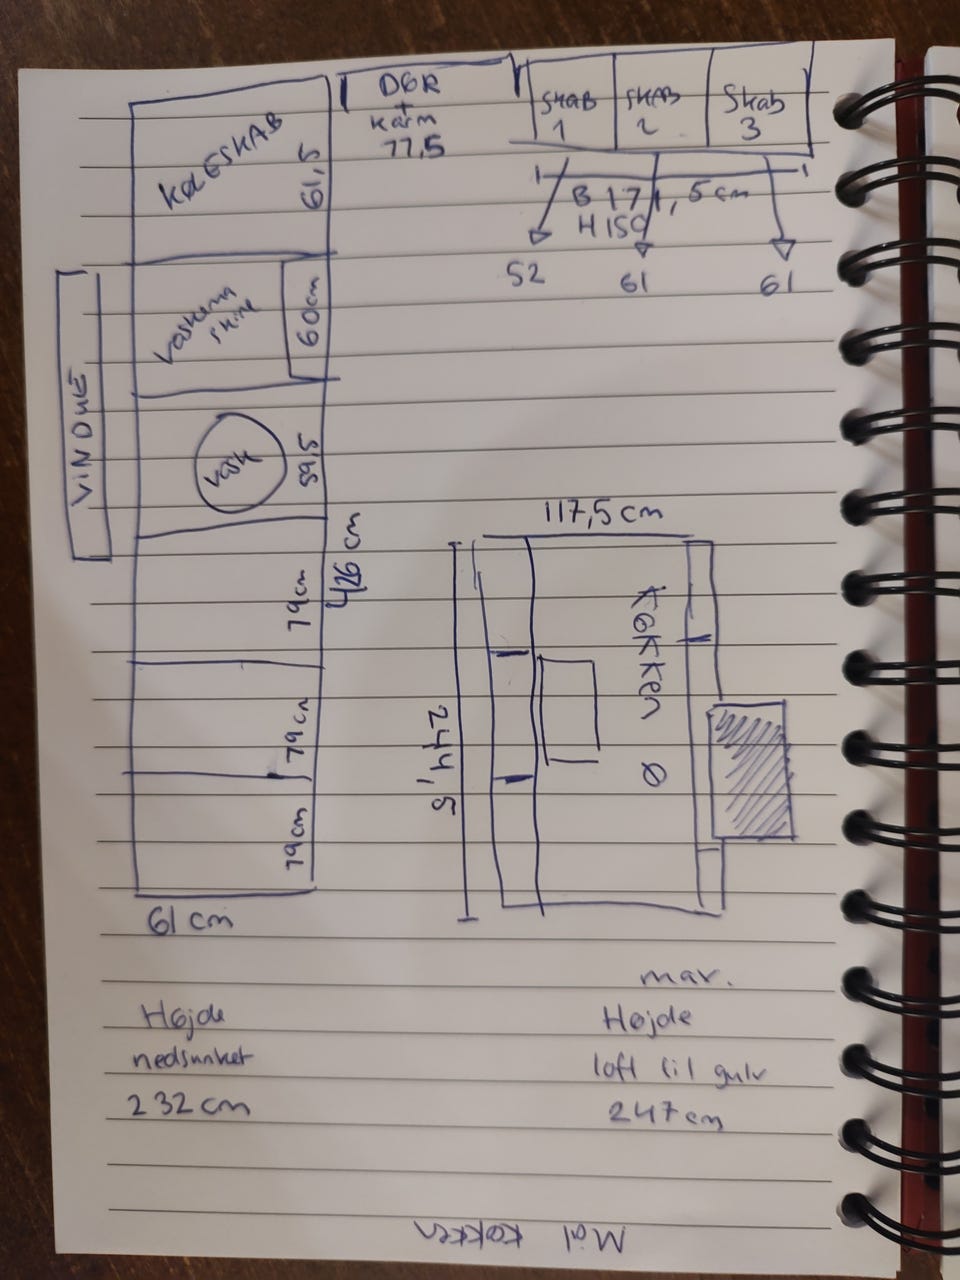 KØLESKAB
61,5
DØR
+
karm
77,5
SKAB
1
SKAB
2
Skab
3
B 171,5 cm
H 150
52
61
61
VINDUE
Vaskema
skine
60cm
Vask
59,5
426 cm
79cm
79cm
79cm
61 cm
117,5 cm
244,5
KØKKEN Ø
Højde
nedsunket
232 cm
max.
Højde
loft til gulv
247 cm
Mål køkken